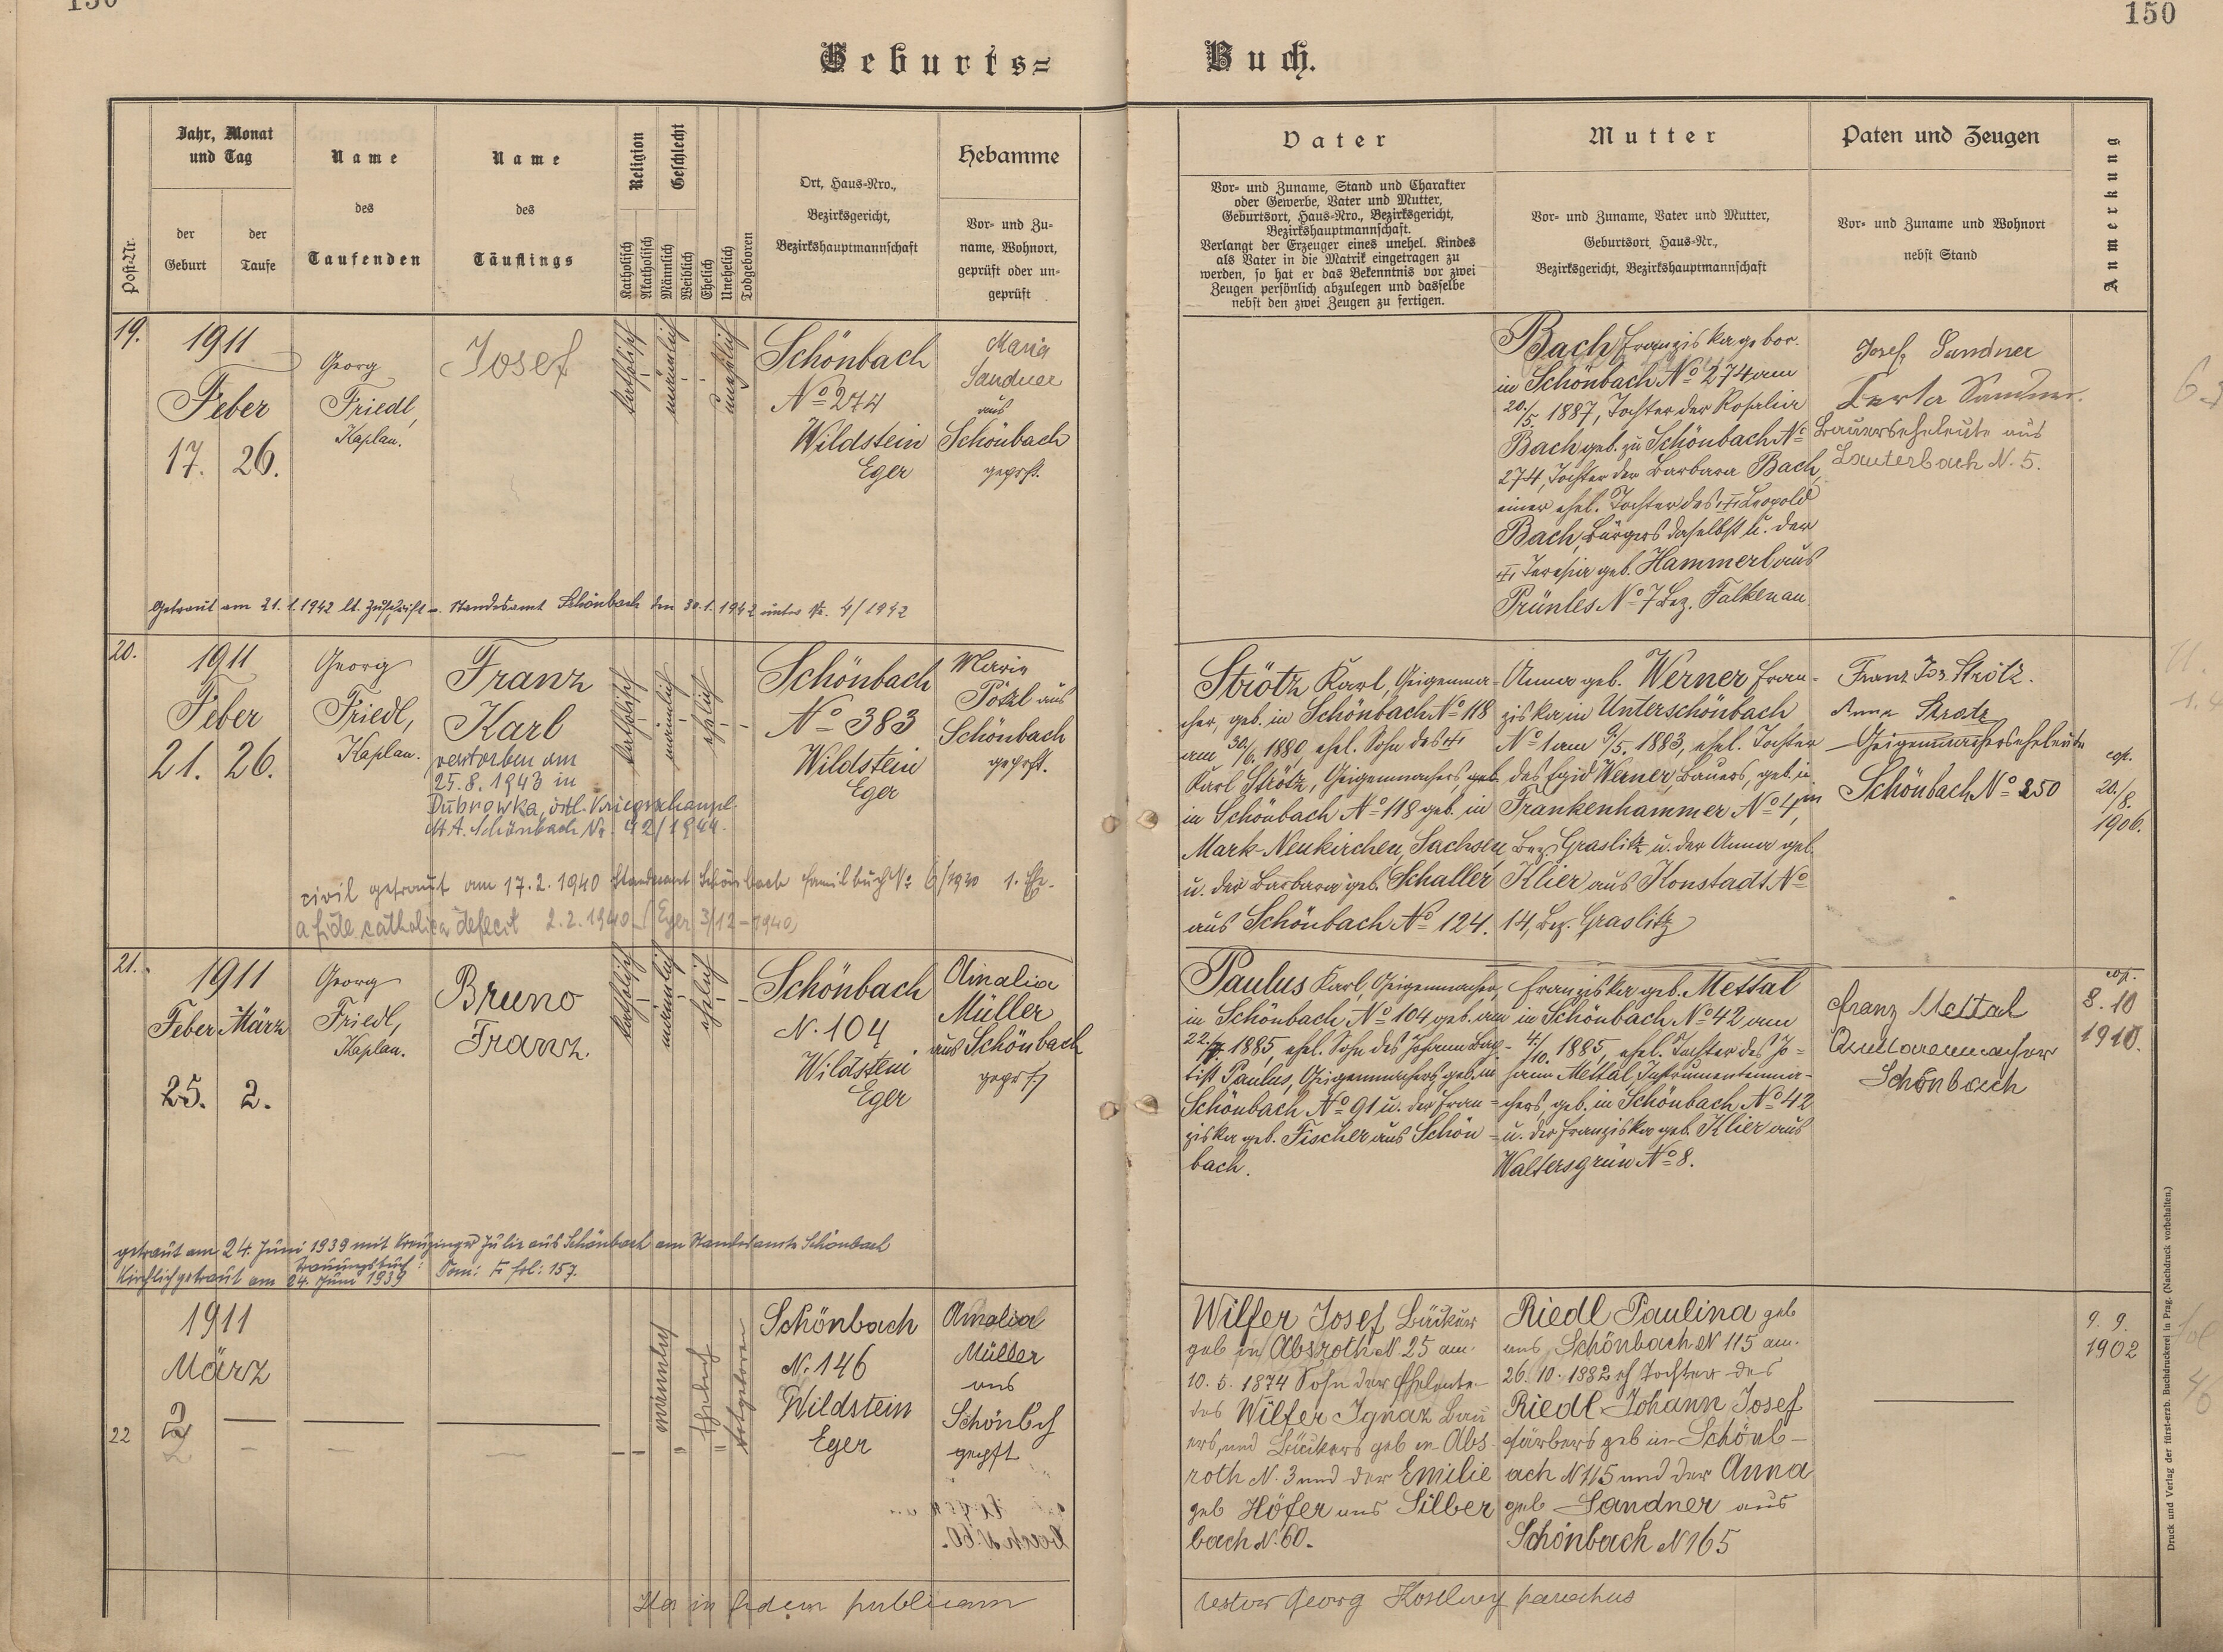 150
150
Geburts=
Buch.
Post-Nr.
Jahr, Monat
und Tag
der
Geburt
der
Taufe
Name
des
Taufenden
Name
des
Täuflings
Religion
Katholisch
Akatholisch
Geschlecht
Männlich
Weiblich
Ehelich
Unehelich
Todgeboren
Ort, Haus-Nro.,
Bezirksgericht,
Bezirkshauptmannschaft
Hebamme
Vor- und Zu-
name, Wohnort,
geprüft oder un-
geprüft
Vater
Vor- und Zuname, Stand und Charakter
oder Gewerbe, Vater und Mutter,
Geburtsort, Haus-Nro., Bezirksgericht,
Bezirkshauptmannschaft.
Verlangt der Erzeuger eines unehel. Kindes
als Vater in die Matrik eingetragen zu
werden, so hat er das Bekenntnis vor zwei
Zeugen persönlich abzulegen und dasselbe
nebst den zwei Zeugen zu fertigen.
Mutter
Vor- und Zuname, Vater und Mutter,
Geburtsort, Haus-Nr.,
Bezirksgericht, Bezirkshauptmannschaft
Paten und Zeugen
Vor- und Zuname und Wohnort
nebst Stand
Anmerkung
19.
1911
Feber
17. 26.
Georg
Friedl,
Kaplan.
Josef
katholisch
männlich
unehelich
Schönbach
No 274
Wildstein
Eger
Maria
Sandner
aus
Schönbach
geprft.
Bach Franziska gebor.
in Schönbach No 274 am
20./5. 1887, Tochter der Rosalia
Bach geb. zu Schönbach No
274, Tochter der Barbara Bach,
einer ehel. Tochter des Leopold
Bach, Bürgers daselbst u. der
Teresia geb. Hammerl aus
Prünles No 7 Bez. Falkenau.
Josef Sandner
Berta Sandner.
Bauerseheleute aus
Lauterbach N. 5.
Getraut am 21.1.1942 lt. Zuschrift Standesamt Schönbach den 30.1.1942 unter Nr. 4/1942
20.
1911
Feber
21. 26.
Georg
Friedl,
Kaplan.
Franz
Karl
verstorben am
25.8.1943 in
Dubrowka, östl. Kriegsschaupl.
St. A. Schönbach Nr. 42/1944.
katholisch
männlich
ehelich
Schönbach
No 383
Wildstein
Eger
Maria
Pötzl aus
Schönbach
geprft.
Strötz Karl, Geigenma-
cher, geb. in Schönbach No 118
am 30./6. 1880, ehel. Sohn des
Karl Strötz, Geigenmachers, geb.
in Schönbach No 118 geb. in
Mark-Neukirchen, Sachsen
u. der Barbara geb. Schaller
aus Schönbach No 124.
Anna geb. Werner Fran-
ziska in Unterschönbach
No 1 am 9/5. 1883, ehel. Tochter
des Egid Werner, Bauers, geb. in
Frankenhammer No 4,
Bez. Graslitz u. der Anna geb.
Klier aus Konstadt No
14, Bez. Graslitz
Franz Jos. Strötz.
Anna Strotz
Geigenmacherseheleute
Schönbach No 250
cop.
20./8.
1906.
civil getraut am 17.2.1940 Standesamt Schönbach Familbuch No 6/1940 1. Ehe.
a fide catholica defecit 2.2.1940 (Eger 3/12-1940)
21.
1911
Feber März
25. 2.
Georg
Friedl,
Kaplan.
Bruno
Franz.
katholisch
männlich
ehelich
Schönbach
N. 104
Wildstein
Eger
Amalia
Müller
aus Schönbach
geprft
Paulus Karl, Geigenmacher,
in Schönbach No 104 geb. am
22./7. 1885, ehel. Sohn des Johann Bap-
tist Paulus, Geigenmachers, geb. in
Schönbach No 91 u. der Fran-
ziska geb. Fischer aus Schön-
bach.
Franziska geb. Mettal
in Schönbach No 42 am
4./10. 1885, ehel. Tochter des Jo-
hann Mettal, Instrumentenma-
chers, geb. in Schönbach No 42
u. der Franziska geb. Klier aus
Waltersgrün No 8.
Franz Mettal
Guitarremacher
Schönbach
cop.
8. 10
1910.
getraut am 24. Juni 1939 mit Kreuzinger Julie aus Schönbach am Standesamte Schönbach
Trauungsbuch:
Kirchlich getraut am 24. Juni 1939 Tom: F fol: 157.
22
1911
März
2
männlich
Ehelich
totgeboren
Schönbach
N. 146
Wildstein
Eger
Amalia
Müller
aus
Schönbch
geprft
Wilfer Josef Bäcker
geb in Absroth N 25 am
10. 5. 1874 Sohn der Eheleute
des Wilfer Ignaz Bau
ers, und Bäckers geb in Abs-
roth N. 3 und der Emilie
geb Höfer aus Silber
bach N. 60.
Riedl Paulina geb
aus Schönbach N 115 am.
26. 10. 1882 eh Tochter des
Riedl Johann Josef
Färbers geb in Schönb-
ach N 115 und der Anna
geb Sandner aus
Schönbach N 165
9. 9.
1902
Ita in fidem publicam
testor Georg parochus
Druck und Verlag der fürst-erzb. Buchdruckerei in Prag. (Nachdruck vorbehalten.)